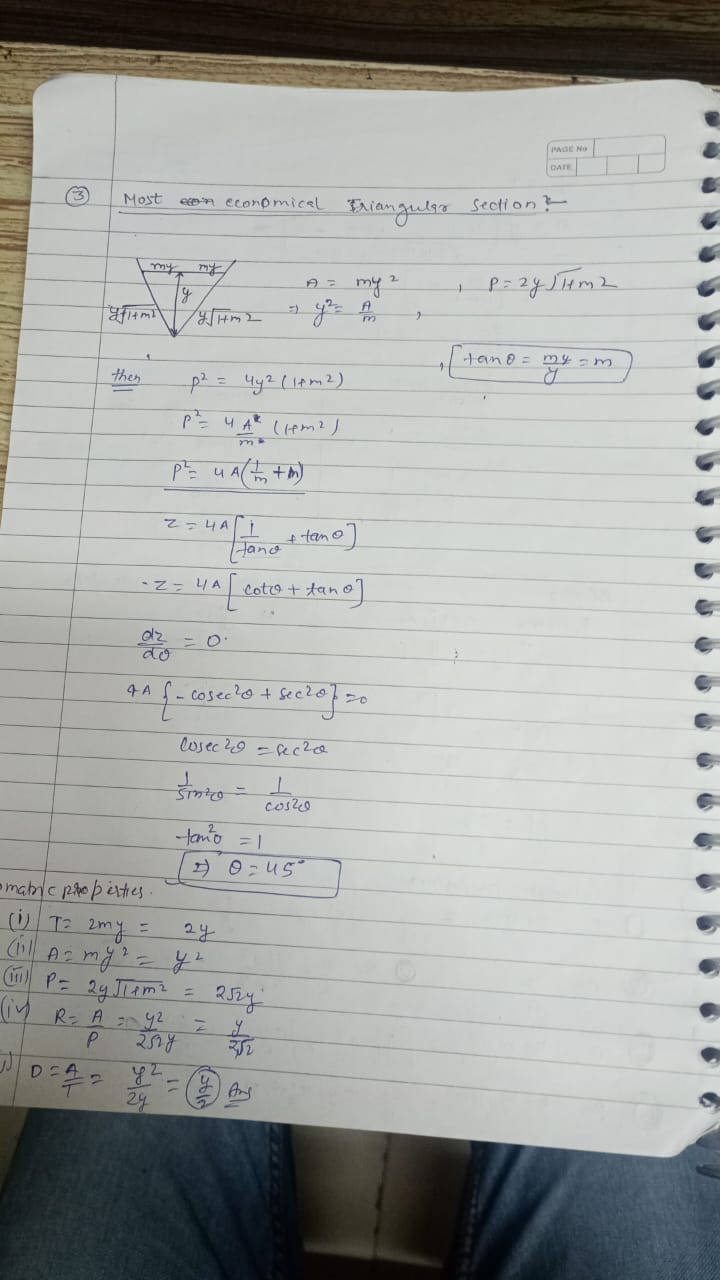 PAGE No
DATE
③ Most economical Triangular Section :-
my my
y
y√1+m² y√1+m²
A = my² , P = 2y√1+m²
⇒ y² = A/m ,
, tanθ = my/y = m
then P² = 4y² (1+m²)
P² = 4 A/m (1+m²)
P² = 4A(1/m + m)
Z = 4A[1/tanθ + tanθ]
Z = 4A [cotθ + tanθ]
dz/dθ = 0
4A {-cosec²θ + sec²θ} = 0
cosec²θ = sec²θ
1/sin²θ = 1/cos²θ
tan²θ = 1
⇒ θ = 45°
omatric properties.
(i) T = 2my = 2y
(ii) A = my² = y²
(iii) P = 2y√1+m² = 2√2y
(iv) R = A/P = y²/2√2y = y/2√2
) D = A/T = y²/2y = y/2 Ans